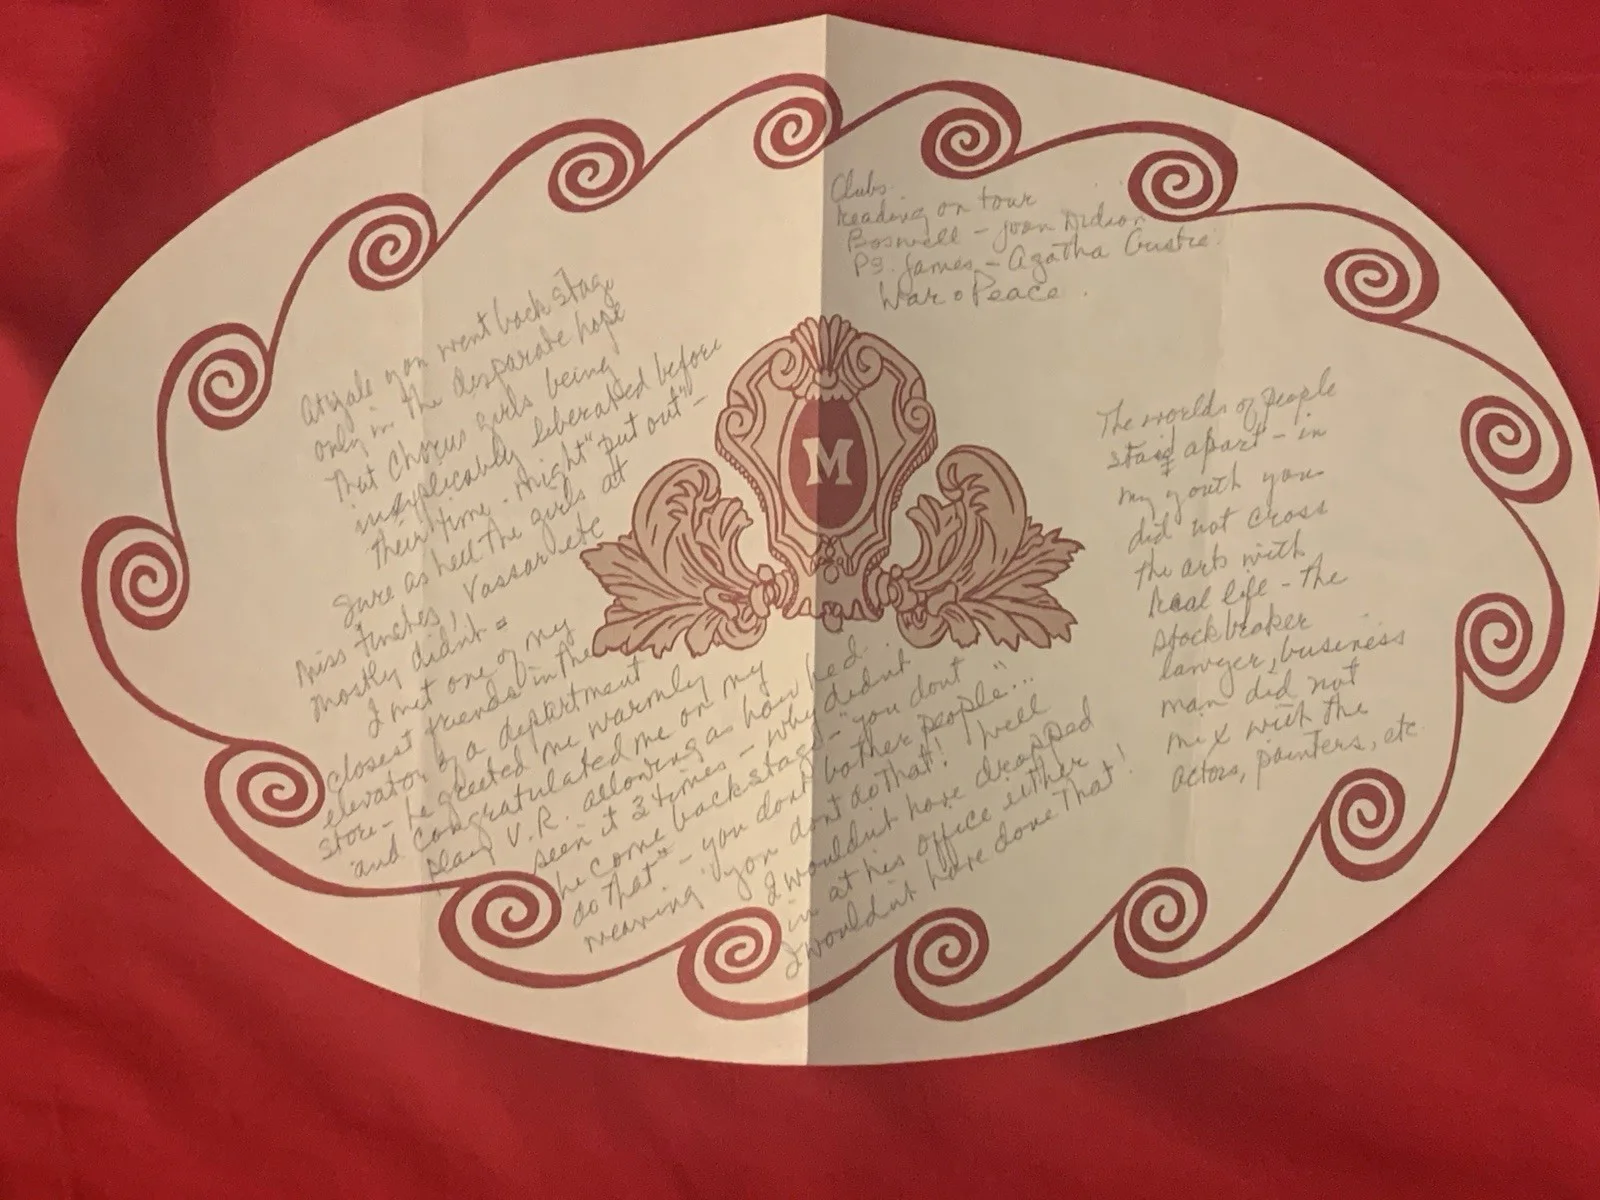 Clubs.
Reading on tour
Boswell - Joan Didion
P.G. James - Agatha Cristie.
War & Peace.
At Yale you went back stage
only in the desparate hope
that chorus girls being
inexplicably liberated before
their time - might "put out" -
Sure as hell the girls at
Miss Finches, Vassar etc
mostly didnt =
I met one of my
closest friends in the
elevator of a department
store - he greeted me warmly
and congratulated me on my
play V.R. allowing as how he'd
seen it 3 times - why didnt
he come backstage - "you dont
do that" - you dont bother people"...
meaning "you dont do that! Well
I wouldn't have dropped
in at his office either
I wouldnt have done that!
M
The worlds of people
staid apart - in
my youth you
did not cross
the arts with
Real life - the
stockbroker
lawyer, business
man did not
mix with the
actors, painters, etc